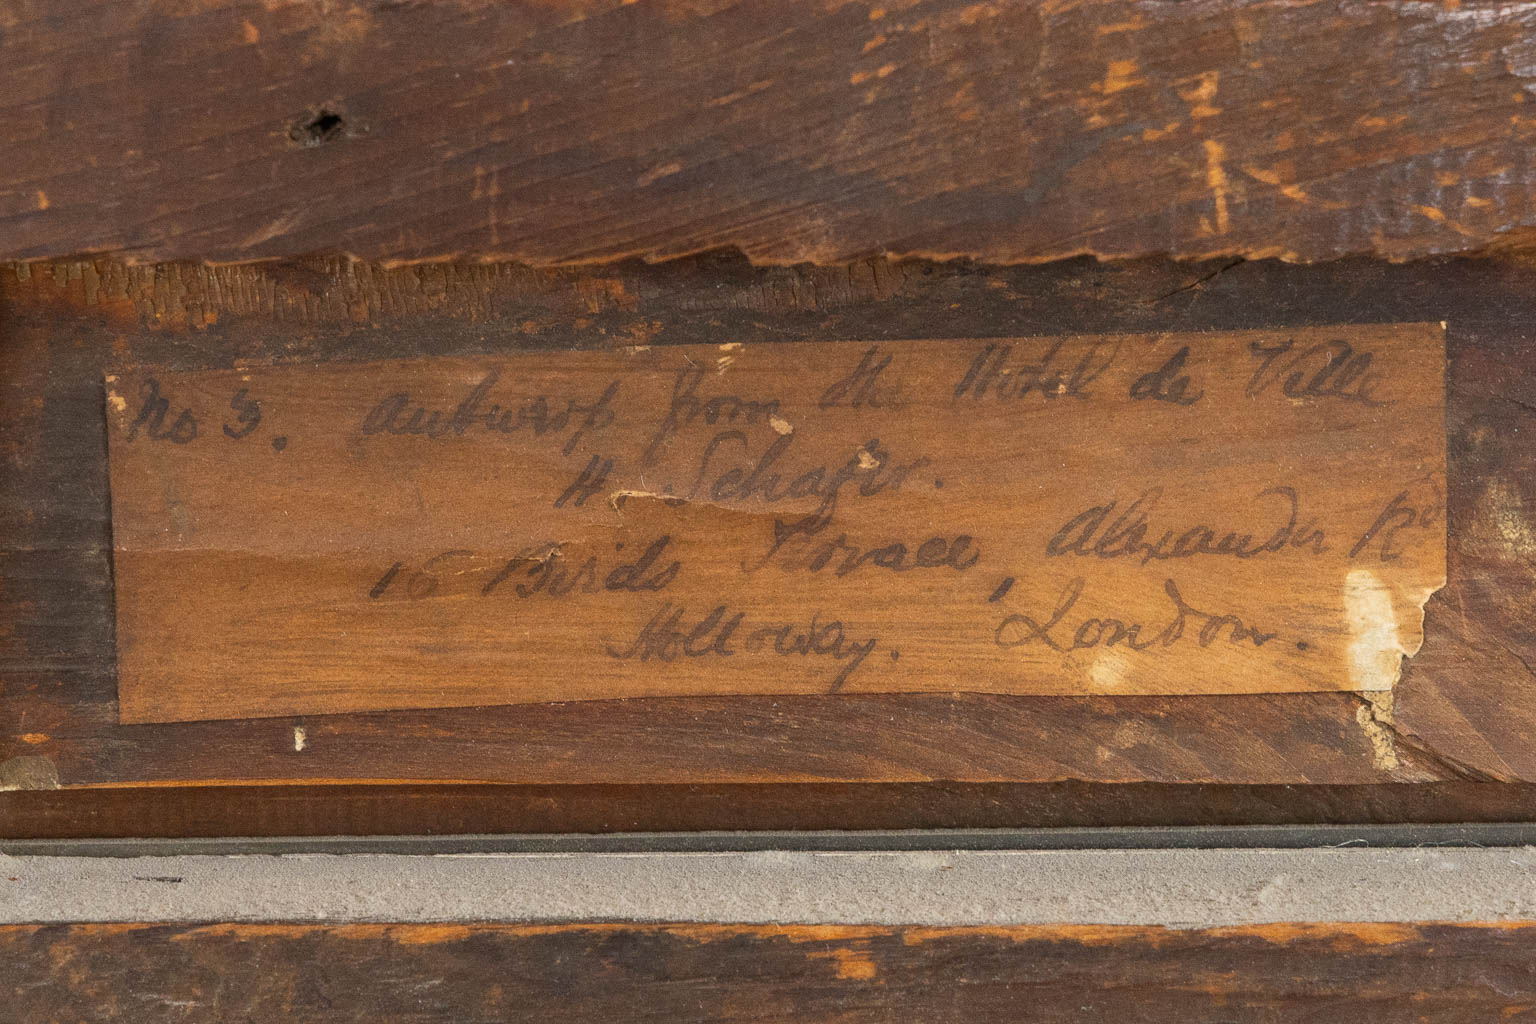 No 3. Antwerp from the Hotel de Ville
H. Schafer.
16 Birds Terrace Alexander Rd
Holloway. London.